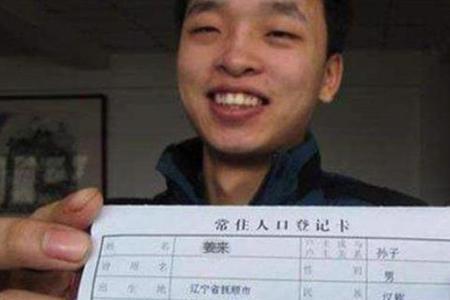 常住人口登记卡
姓名 姜来 户主或与户主关系 孙子
曾用名 性别 男
出生地 辽宁省抚顺市 民族 汉族